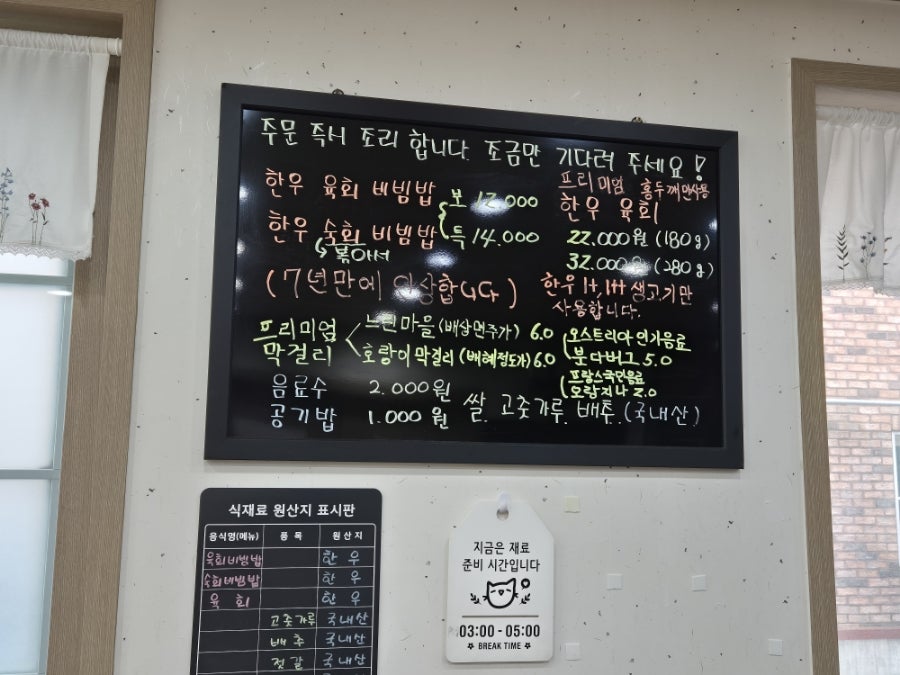 주문 즉시 조리 합니다. 조금만 기다려 주세요!
한우 육회 비빔밥
한우 숙회 비빔밥
볶아서
보 12.000
특 14.000
(7년만에 인상합니다)
프리미엄 홍두깨만사용
한우 육회
22.000원 (180g)
32.000원 (280g)
한우 1+, 1++ 생고기만
사용합니다.
프리미엄
막걸리
느린마을 (배상면주가) 6.0
호랑이 막걸리 (배혜정도가) 6.0
오스트리아 연가음료
붓다버그 5.0
프랑스국민음료
오랑지나 2.0
음료수 2.000원
공기밥 1.000 원
쌀. 고춧가루. 배추. (국내산)
식재료 원산지 표시판
음식명(메뉴) 품 목 원 산 지
육회비빔밥 한 우
숙회비빔밥 한 우
육 회 한 우
고춧가루 국내산
배 추 국내산
젓 갈 국내산
지금은 재료
준비 시간입니다
03:00 - 05:00
BREAK TIME